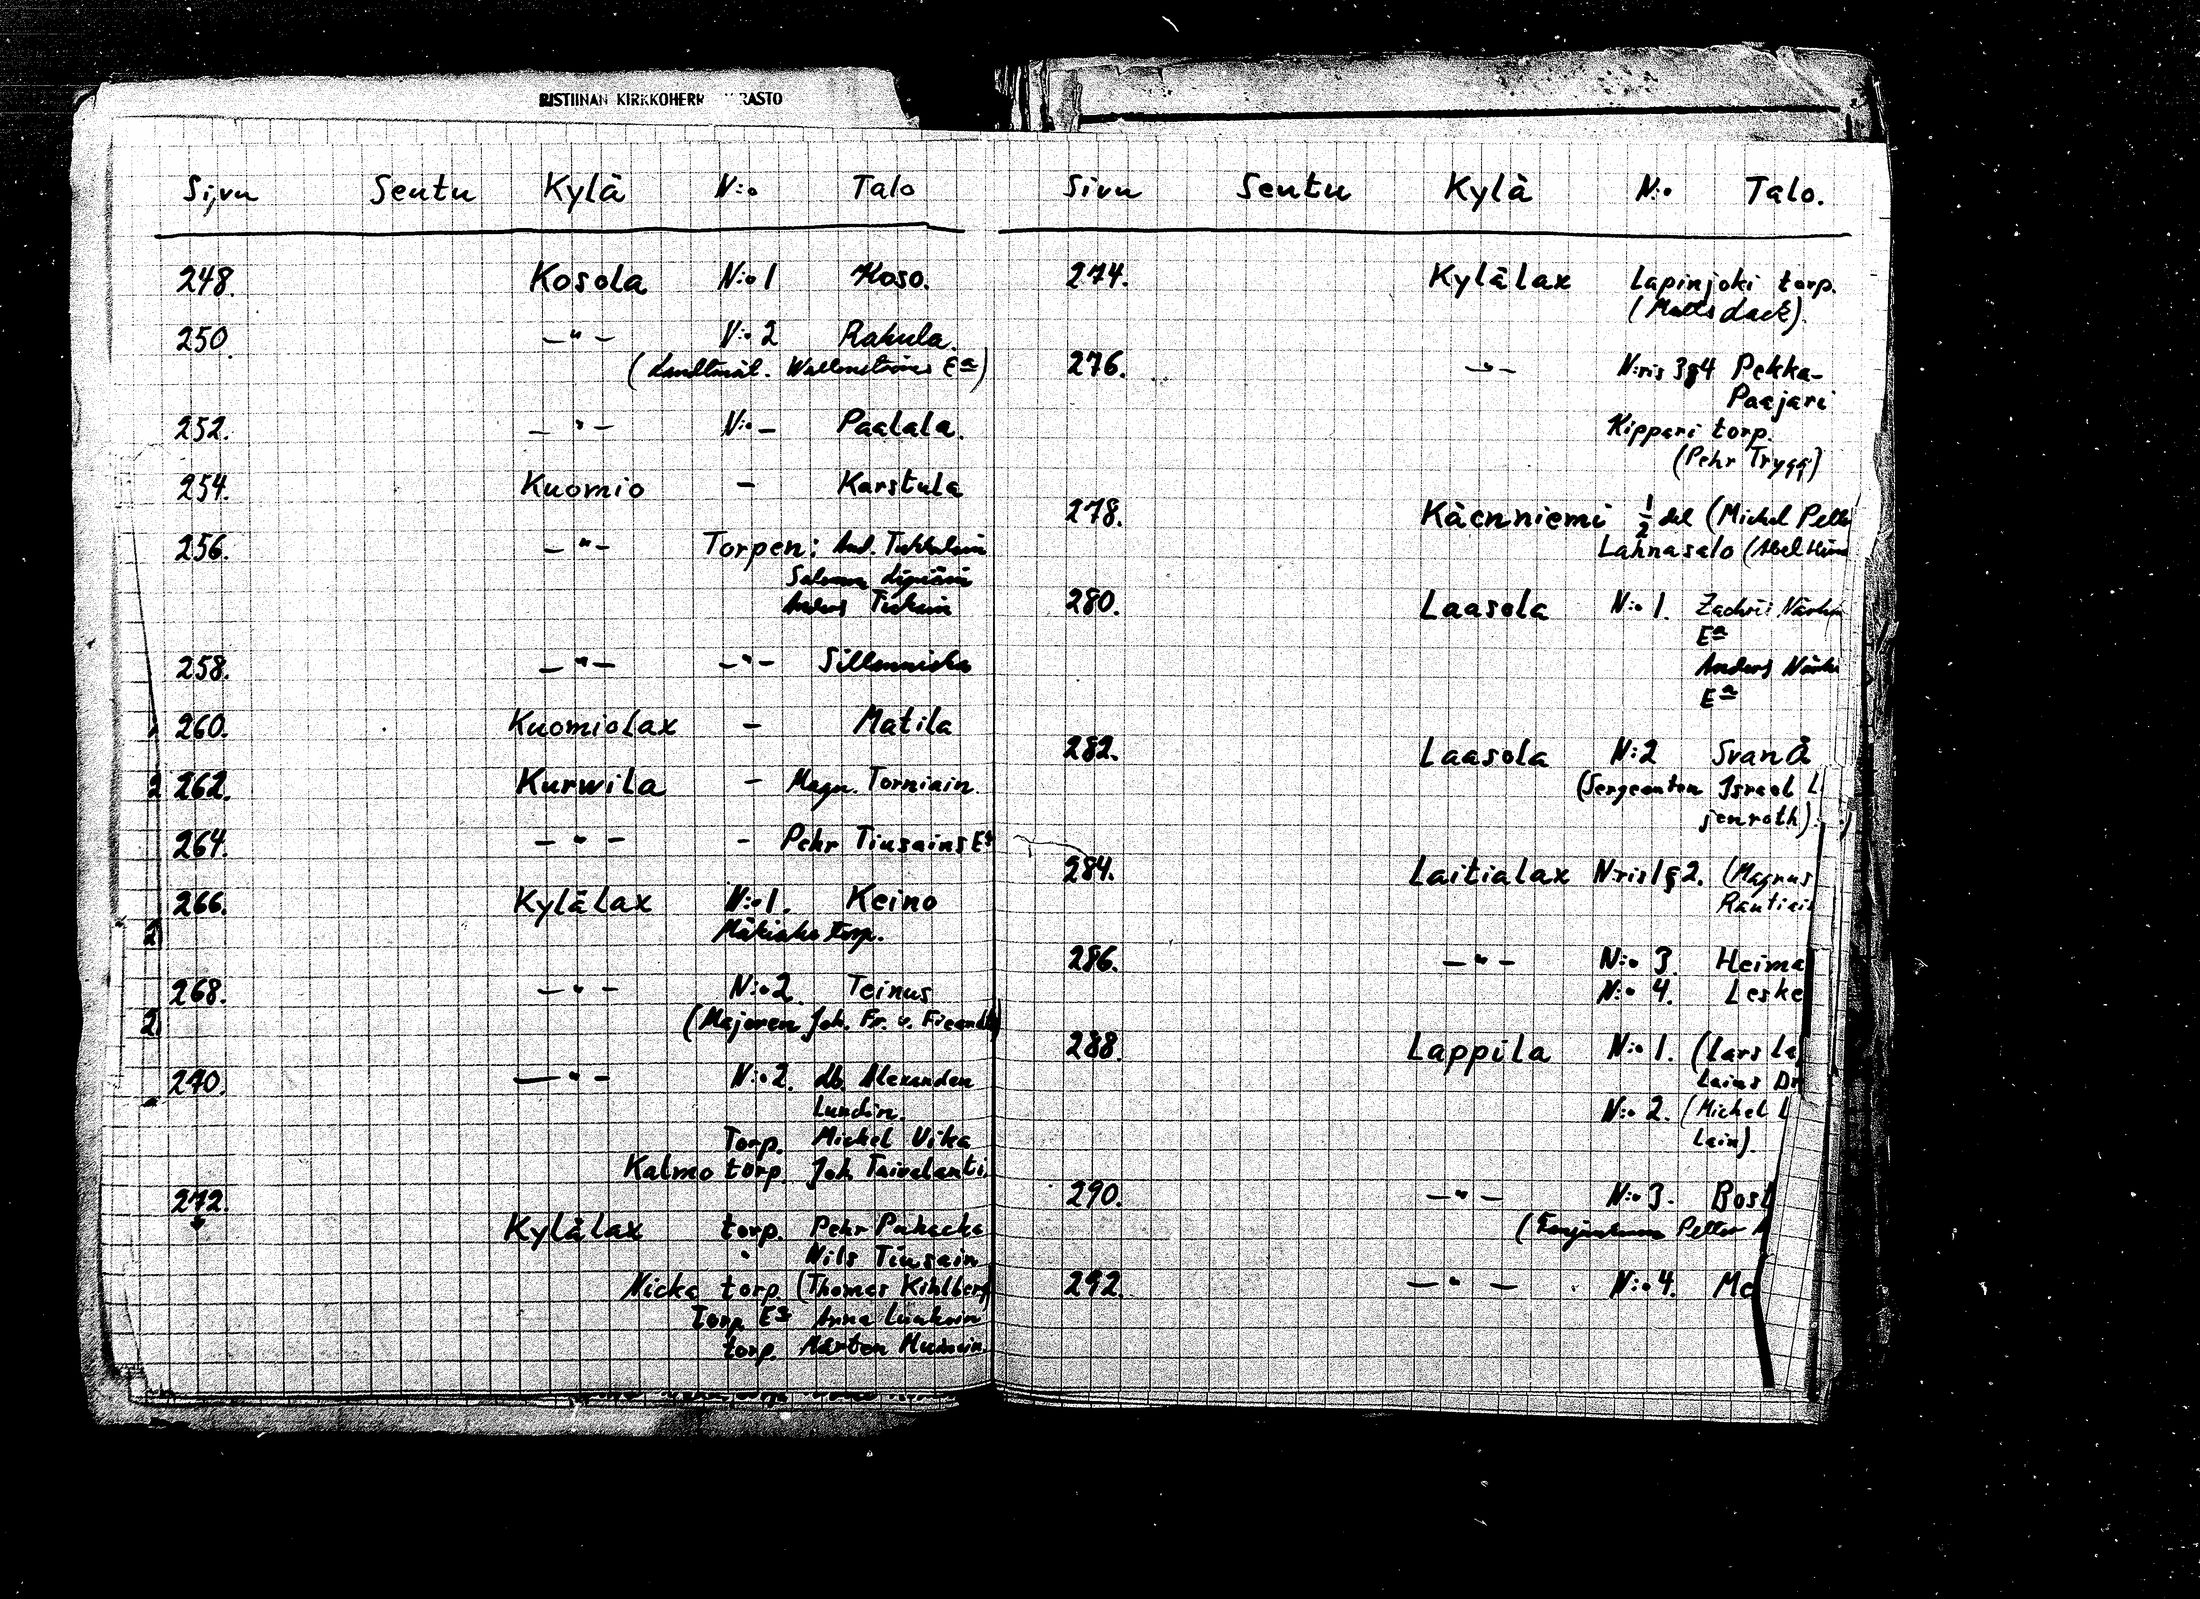 RISTIINAN KIRKKOHERR RASTO
Sivu Seutu Kylä N:o Talo
248. Kosola N:o 1 Koso.
250. —"— N:o 2 Rahula.
(Landtmät. Wallenströms Eª)
252. —"— N:o — Paalala.
254. Kuomio — Karstula
256. —"— Torpen: And. Tukkulain
Salomon
Anders Tiusain
258. —"— —"— Sillanniska
260. Kuomiolax — Matila
262. Kurwila — Magn. Torniain.
264. —"— — Pehr Tiusains Eª
266. Kylälax N:o 1. Keino
torp.
268. —"— N:o 2. Teinus
(Majoren Joh. Fr. v. Fieandt)
270. —"— N:o 2. db. Alexander
Lundin.
Torp. Michel Vika
Kalmo torp. Joh. Taivalanti.
272.
Kylälax torp. Pehr Pukacka
" Nils Tiusain
Nicka torp. (Thomas Kihlberg)
Torp Eª Anna Liukoin
torp. Mårten
Sivu Seutu Kylä N:o Talo.
274. Kylälax Lapinjoki torp.
(Matts Lack).
276. —"— N:ris 3 & 4 Pekka-
Paajari
Kippari torp.
(Pehr Trygg)
278. Käenniemi ½ del (Michel Pello
Lahnasalo (Abel
280. Laasola N:o 1. Zachris
Eª
Anders
Eª
282. Laasola N:2 Svanå
(Sergeanten Israel L
jenroth).
284. Laitialax N:ris 1 & 2. (Magnus
Rautiai
286. —"— N:o 3. Heima
N:o 4. Leske
288. Lappila N:o 1. (Lars Le
Lains Dr
N:o 2. (Michel L
Lain).
290. —"— N:o 3. Bost
(Petter
292. —"— N:o 4. Me